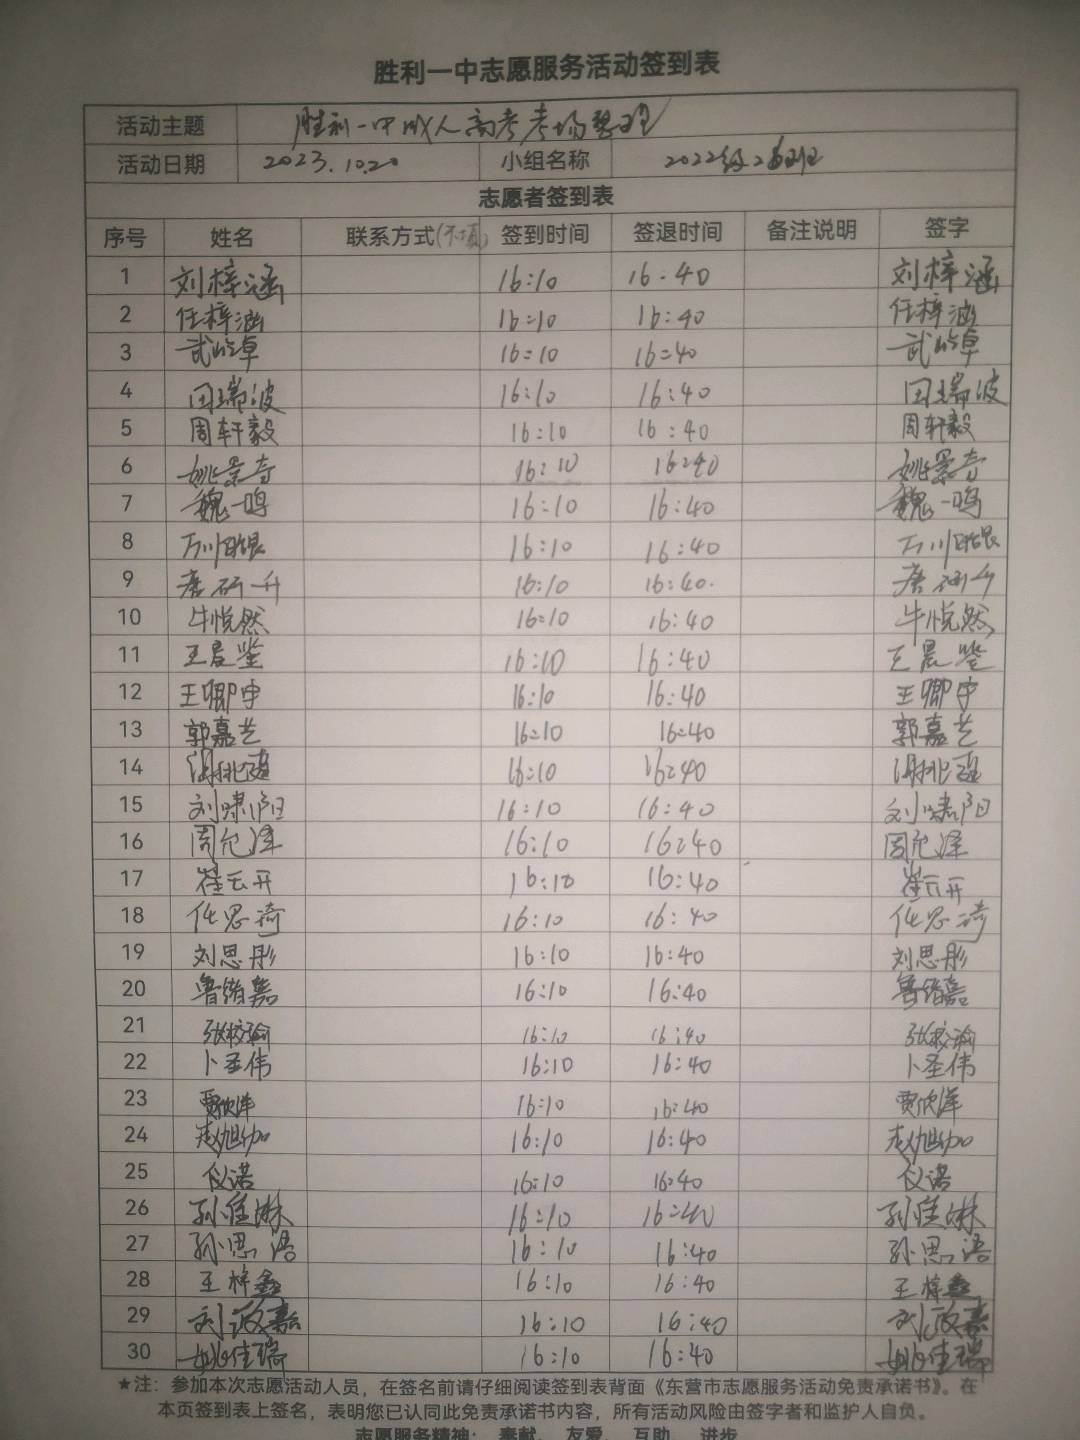 胜利一中志愿服务活动签到表
活动主题 胜利一中成人高考考场整理
活动日期 2023.10.20 小组名称 2022级 班
志愿者签到表
序号 姓名 联系方式(不填) 签到时间 签退时间 备注说明 签字
1 刘梓涵 16:10 16:40 刘梓涵
2 任梓涵 16:10 16:40 任梓涵
3 16:10 16:40
4 田瑞波 16:10 16:40 田瑞波
5 周轩毅 16:10 16:40 周轩毅
6 姚景奇 16:10 16:40 姚景奇
7 魏一鸣 16:10 16:40 魏一鸣
8 16:10 16:40
9 16:10 16:40
10 牛悦然 16:10 16:40 牛悦然
11 王晨鉴 16:10 16:40 王晨鉴
12 王卿宇 16:10 16:40 王卿宇
13 郭嘉艺 16:10 16:40 郭嘉艺
14 16:10 16:40
15 刘啸阳 16:10 16:40 刘啸阳
16 周允泽 16:10 16:40 周允泽
17 崔云开 16:10 16:40 崔云开
18 任思琦 16:10 16:40 任思琦
19 刘思彤 16:10 16:40 刘思彤
20 鲁绪嘉 16:10 16:40 鲁绪嘉
21 16:10 16:40
22 卜圣伟 16:10 16:40 卜圣伟
23 贾欣洋 16:10 16:40 贾欣洋
24 16:10 16:40
25 仪诺 16:10 16:40 仪诺
26 孙佳琳 16:10 16:40 孙佳琳
27 孙思语 16:10 16:40 孙思语
28 王梓鑫 16:10 16:40 王梓鑫
29 16:10 16:40
30 姚佳瑞 16:10 16:40 姚佳瑞
★注：参加本次志愿活动人员，在签名前请仔细阅读签到表背面《东营市志愿服务活动免责承诺书》。在
本页签到表上签名，表明您已认同此免责承诺书内容，所有活动风险由签字者和监护人自负。
志愿服务精神：奉献、友爱、互助、进步